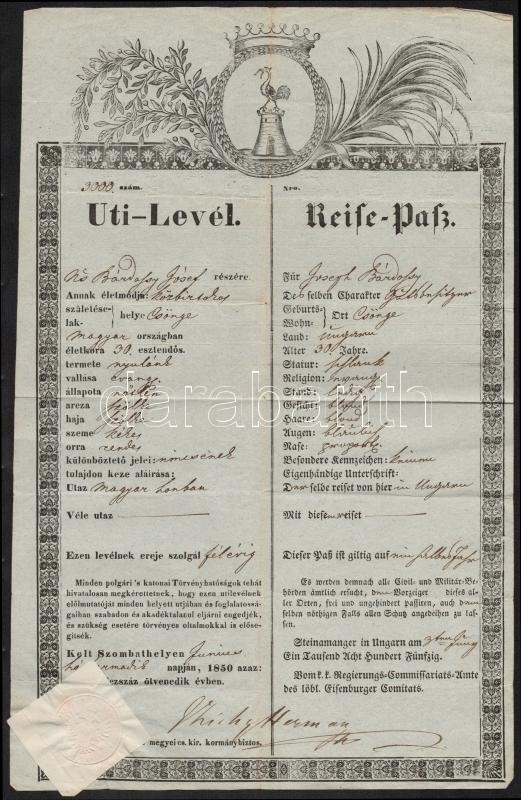 3000. szám.
Uti-Levél.
Bárdossy József részére.
Annak életmódja: közbirtokos
születése-
lak- } helye Csönge
Magyar országban
életkora 30. esztendős.
termete nyulánk
vallása evang.
állapota nőtlen
arcza
haja szőke
szeme kékes
orra rendes
különböztető jelei: nincsenek
tulajdon keze aláirása:
Utaz Magyar honban
Véle utaz
Ezen levélnek ereje szolgál félévig
Minden polgári 's katonai Törvényhatóságok tehát
hivatalosan megkérettetnek, hogy ezen utilevélnek
előlmutatóját minden helyett utjában és foglalatossá-
gaiban szabadon és akadéktalanul eljárni engedjék,
és szükség esetére törvényes oltalmokkal is előse-
gitsék.
Kelt Szombathelyen Junius
harmadik napján, 1850 azaz:
Ezerszáz ötvenedik évben.
Zichy Herman
megyei cs. kir. kormánybiztos.
Nro.
Reise-Paß.
Für Joseph Bárdossy
Desselben Charakter Gutsbesitzer
Geburts-
Wohn- } Ort Csönge
Land: Ungarn
Alter 30 Jahre.
Statur: schlank
Religion: evang.
Stand: ledig
Gesicht:
Haare: blond
Augen: blaulich
Nase:
Besondere Kennzeichen: keine
Eigenhändige Unterschrift:
Derselbe reiset von hier in Ungarn
Mit diesem reiset
Dieser Paß ist giltig auf ein halbes Jahr
Es werden demnach alle Civil- und Militär-Be-
hörden ämtlich ersucht, dem Vorzeiger dieses al-
ler Orten, frei und ungehindert passiren, auch dem
selben nöthigen Falls allen Schutz angedeihen zu las-
sen.
Steinamanger in Ungarn am 3ten Juny
Ein Tausend Acht Hundert Fünfzig.
Vom k. k. Regierungs-Commissariats-Amte
des löbl. Eisenburger Comitats.
darabanth